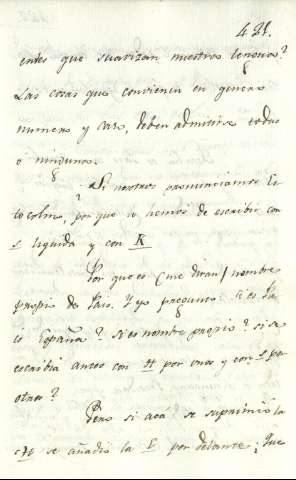 421.
entes que suavizan nuestros lenguas?
Las cosas que convienen en genero
numero y caso, deben admitirse todas
o ningunas.
Si nosotros pronunciamos Es
tocolmo, por que lo hemos de escribir con
S liquida y con K
Por que es (me diran) nombre
propio de Pais. Y yo pregunto si es Pa
is España? si es nombre propio? si se
escribia antes con H por unos y con S por
otros?
Pero si acá se suprimió la
H se añadió la E por delante; que